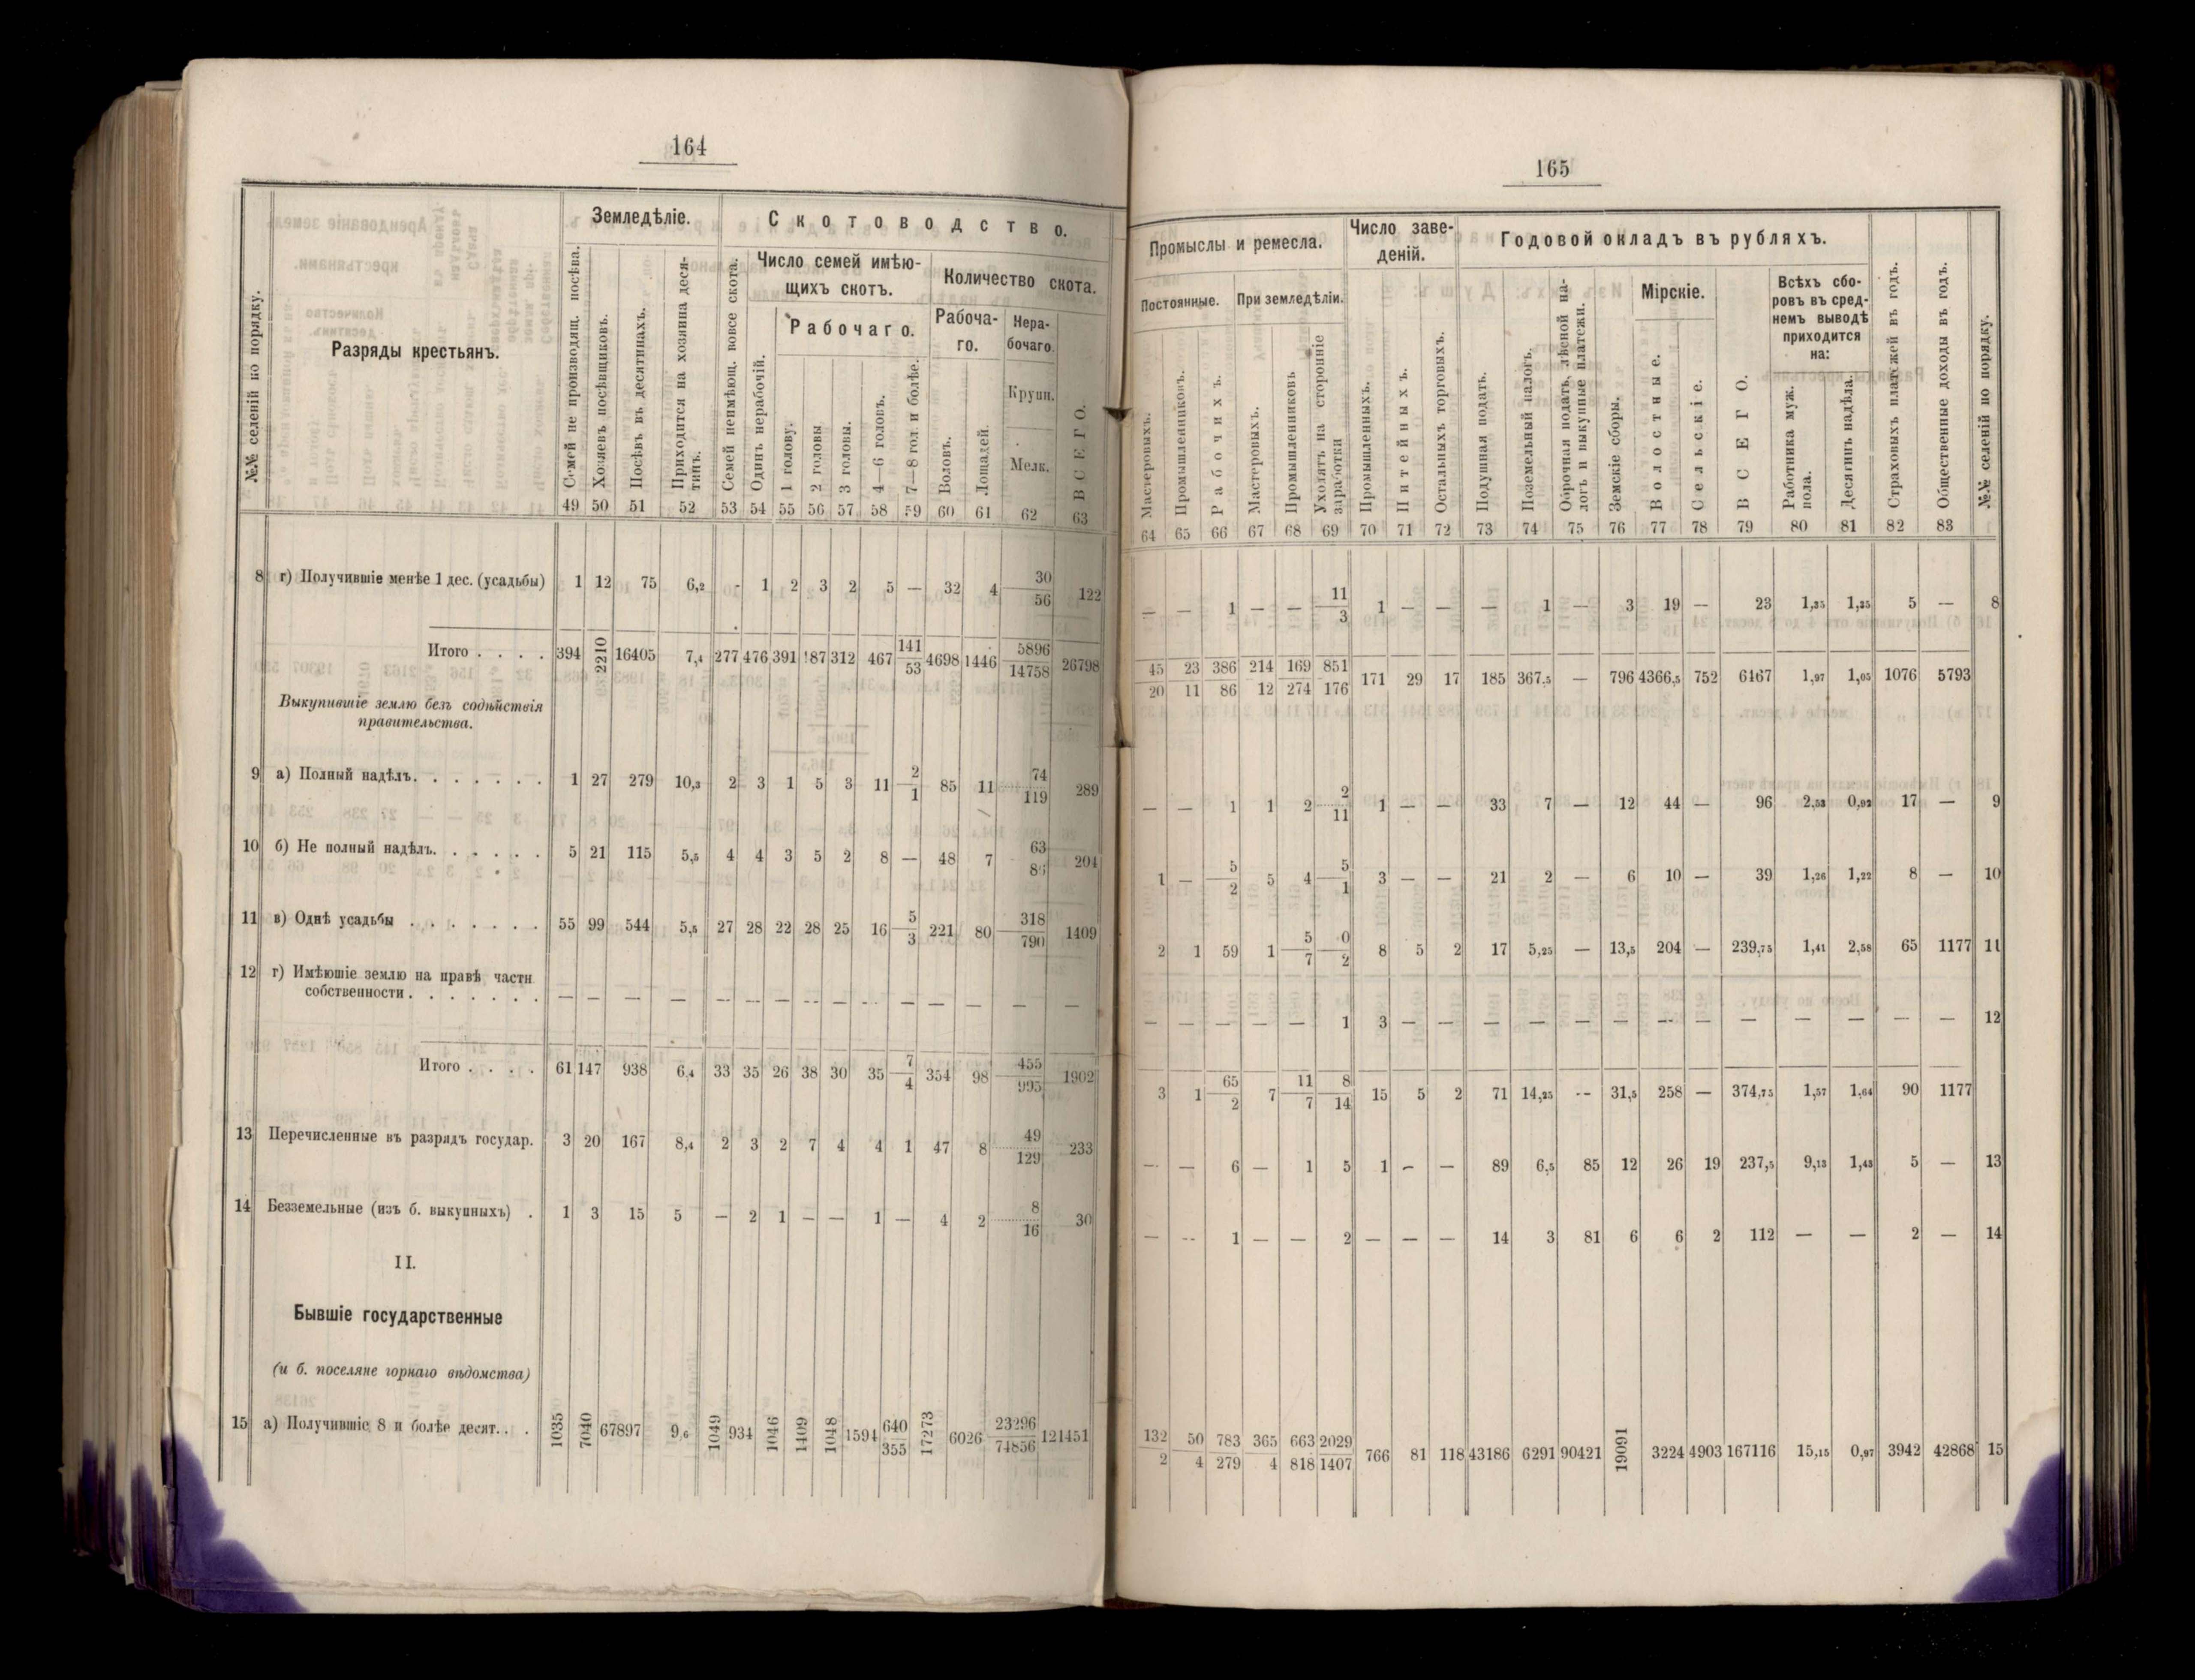 164
№№ селеній по порядку.
Разряды крестьянъ.
Земледѣліе.
Семей не производящ. посѣва.
Хозяевъ посѣвщиковъ.
Посѣвъ въ десятинахъ.
Приходится на хозяина деся-
тинъ.
Скотоводство.
Семей неимѣющ. вовсе скота.
Число семей имѣю-
щихъ скотъ.
Одинъ нерабочій.
Рабочаго.
1 голову.
2 головы
3 головы.
4—6 головъ.
7—8 гол и болѣе.
Количество скота.
Рабоча-
го.
Воловъ.
Лошадей.
Нера-
бочаго.
Крупн.
Мелк.
ВСЕГО.
49 50 51 52 53 54 55 56 57 58 59 60 61 62 63
8 г) Получившіе менѣе 1 дес. (усадьбы) 1 12 75 6,2 - 1 2 3 2 5 — 32 4 30/56 122
Итого . . . . 394 2210 16405 7,4 277 476 391 487 312 467 141/53 4698 1446 5896/14758 26798
Выкупившіе землю безъ содѣйствія
правительства.
9 а) Полный надѣлъ. . . . . . . 1 27 279 10,3 2 3 1 5 3 11 2/1 85 11 74/119 289
10 б) Не полный надѣлъ. . . . . . 5 21 115 5,5 4 4 3 5 2 8 — 48 7 63/86 204
11 в) Однѣ усадьбы . . . . . . . 55 99 544 5,5 27 28 22 28 25 16 5/3 221 80 318/790 1409
12 г) Имѣющіе землю на правѣ частн
собственности . . . . . . . — — — — — — — — — — — — — — —
Итого . . . . 61 147 938 6,4 33 35 26 38 30 35 7/4 354 98 455/995 1902
13 Перечисленные въ разрядъ государ. 3 20 167 8,4 2 3 2 7 4 4 1 47 8 49/129 233
14 Безземельные (изъ б. выкупныхъ) . 1 3 15 5 — 2 1 — — 1 — 4 2 8/16 30
II.
Бывшіе государственные
(и б. поселяне горнаго вѣдомства)
15 а) Получившіе 8 и болѣе десят. . . 1035 7040 67897 9,6 1049 934 1046 1409 1048 1594 640/355 17273 6026 23296/74856 121451
165
Промыслы и ремесла.
Постоянные.
Мастеровыхъ.
Промышленниковъ.
Рабочихъ.
При земледѣліи.
Мастеровыхъ.
Промышленниковъ
Уходятъ на сторонніе
заработки
Число заве-
деній.
Промышленныхъ.
Питейныхъ.
Остальныхъ торговыхъ.
Годовой окладъ въ рубляхъ.
Подушная подать.
Поземельный налогъ.
Оброчная подать, лѣсной на-
логъ и выкупные платежи.
Земскіе сборы.
Мірскіе.
Волостные.
Сельскіе.
ВСЕГО.
Всѣхъ сбо-
ровъ въ сред-
немъ выводѣ
приходится
на:
Работника муж.
пола.
Десятинъ надѣла.
Страховыхъ платежей въ годъ.
Общественные доходы въ годъ.
№№ селеній по порядку.
64 65 66 67 68 69 70 71 72 73 74 75 76 77 78 79 80 81 82 83
— — 1 — — 11/3 1 — — — 1 — 3 19 — 23 1,35 1,35 5 — 8
45/20 23/11 386/86 214/12 169/274 851/176 171 29 17 185 367,5 — 796 4366,5 752 6467 1,97 1,05 1076 5793
— — 1 1 2 2/11 1 — — 33 7 — 12 44 — 96 2,53 0,92 17 — 9
1 — 5/2 5 4 5/1 3 — — 21 2 — 6 10 — 39 1,26 1,22 8 — 10
2 1 59 1 5/7 0/2 8 5 2 17 5,25 — 13,5 204 — 239,75 1,41 2,58 65 1177 11
— — — — — 1 3 — — — — — — — — — — — — — 12
3 1 65/2 7 11/7 8/14 15 5 2 71 14,25 — 31,5 258 — 374,75 1,57 1,64 90 1177
— — 6 — 1 5 1 — — 89 6,5 85 12 26 19 237,5 9,13 1,43 5 — 13
— — 1 — — 2 — — — 14 3 81 6 6 2 112 — — 2 — 14
132/2 50/4 783/279 365/4 663/818 2029/1407 766 81 118 43186 6291 90421 19091 3224 4903 167116 15,15 0,97 3942 42868 15